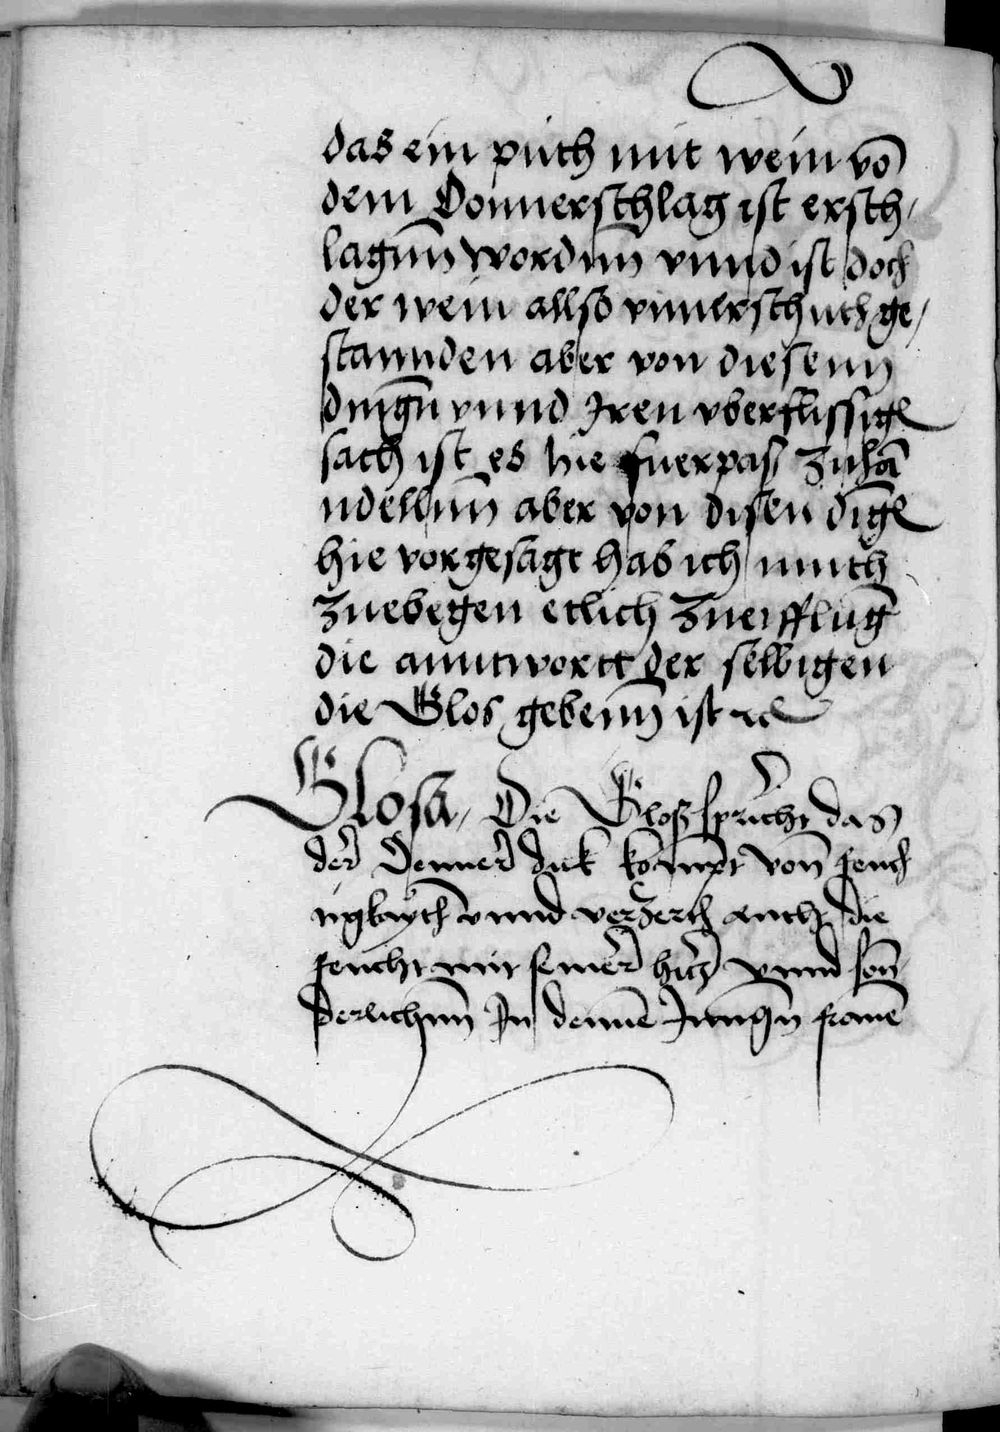 das ein puch mit wein võ
dem Donnerschlag ist ersch/
lagnn wordnn vnnd ist doch
der wein allso vnnerschuch ge/
stannden aber von diesenn
dingn vnnd Iren vberflissige
sach ist es hie fuerpas zuhã
ndellnn aber von disen dige
hie vorgesagt hab ich much
zuebegen etlich zueifflũg
die anntwortt der selbigen
die Glos gebenn ist
Glosa, Die Gloß spricht das
der Donner dick kompt von feuch
tigkaytt vnnd verzert auch die
feucht mit seiner hitz vnnd son
derlichnn In denne Jungn frawe